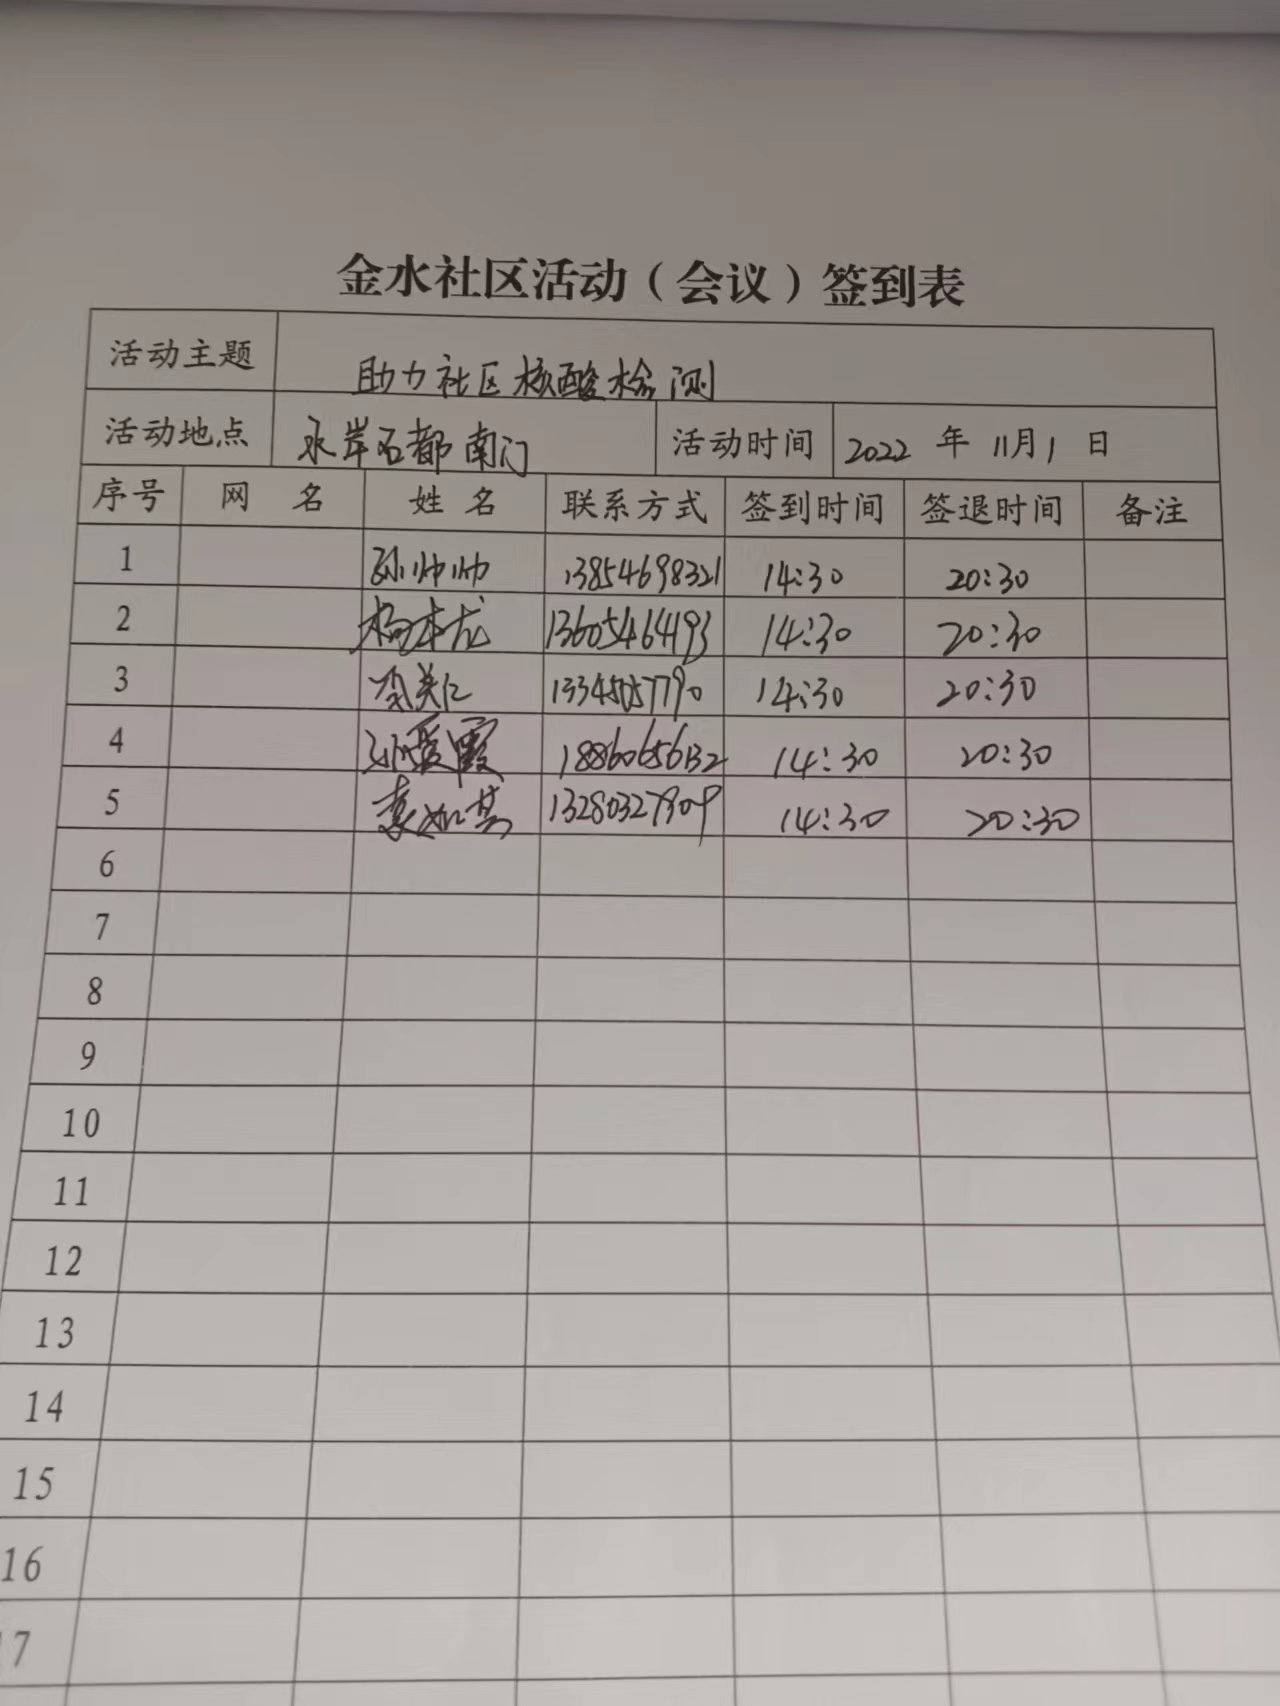 金水社区活动（会议）签到表
活动主题 助力社区核酸检测
活动地点 水岸名都南门 活动时间 2022 年 11月1 日
序号 网 名 姓 名 联系方式 签到时间 签退时间 备注
1 孙帅帅 13854698321 14:30 20:30
2 杨本龙 13605464193 14:30 20:30
3 李美仁 13345057790 14:30 20:30
4 孙爱霞 18860656132 14:30 20:30
5 袁如英 13280327909 14:30 20:30
6
7
8
9
10
11
12
13
14
15
16
17